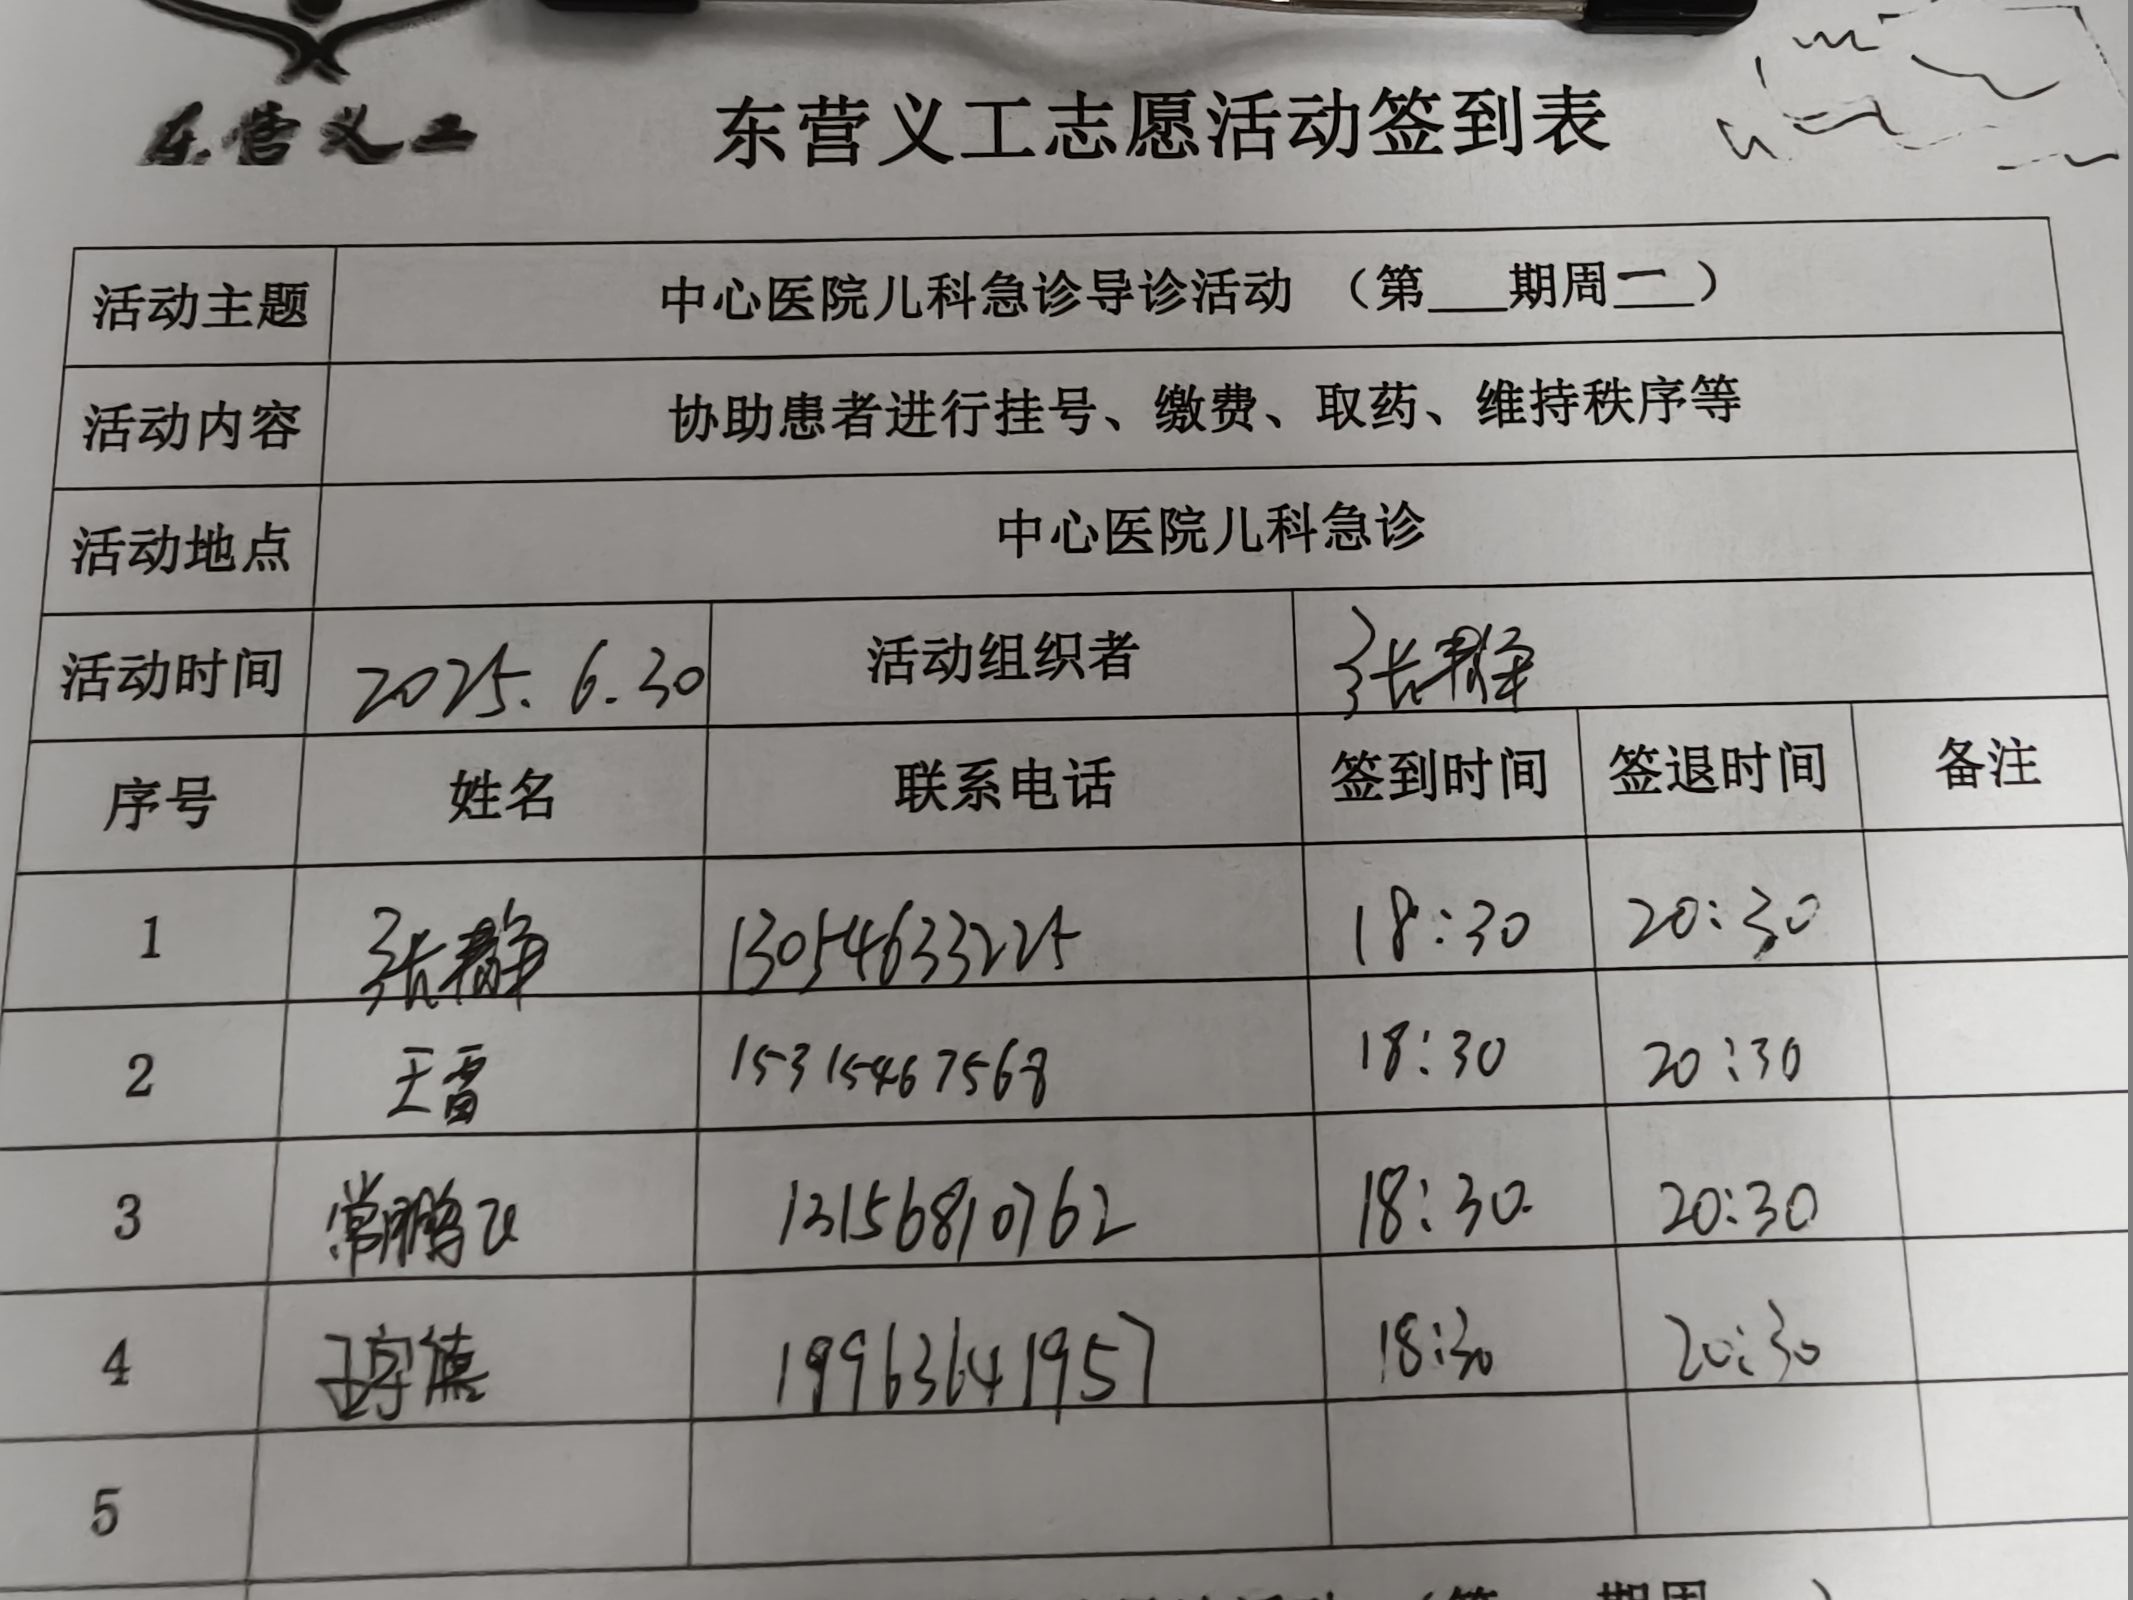 东营义工
东营义工志愿活动签到表
活动主题 中心医院儿科急诊导诊活动 （第___期周一）
活动内容 协助患者进行挂号、缴费、取药、维持秩序等
活动地点 中心医院儿科急诊
活动时间 2025.6.30 活动组织者 张
序号 姓名 联系电话 签到时间 签退时间 备注
1 张 13054633225 18:30 20:30
2 王雷 15315467568 18:30 20:30
3 常鹏飞 13156810762 18:30 20:30
4 王字德 19963641957 18:30 20:30
5